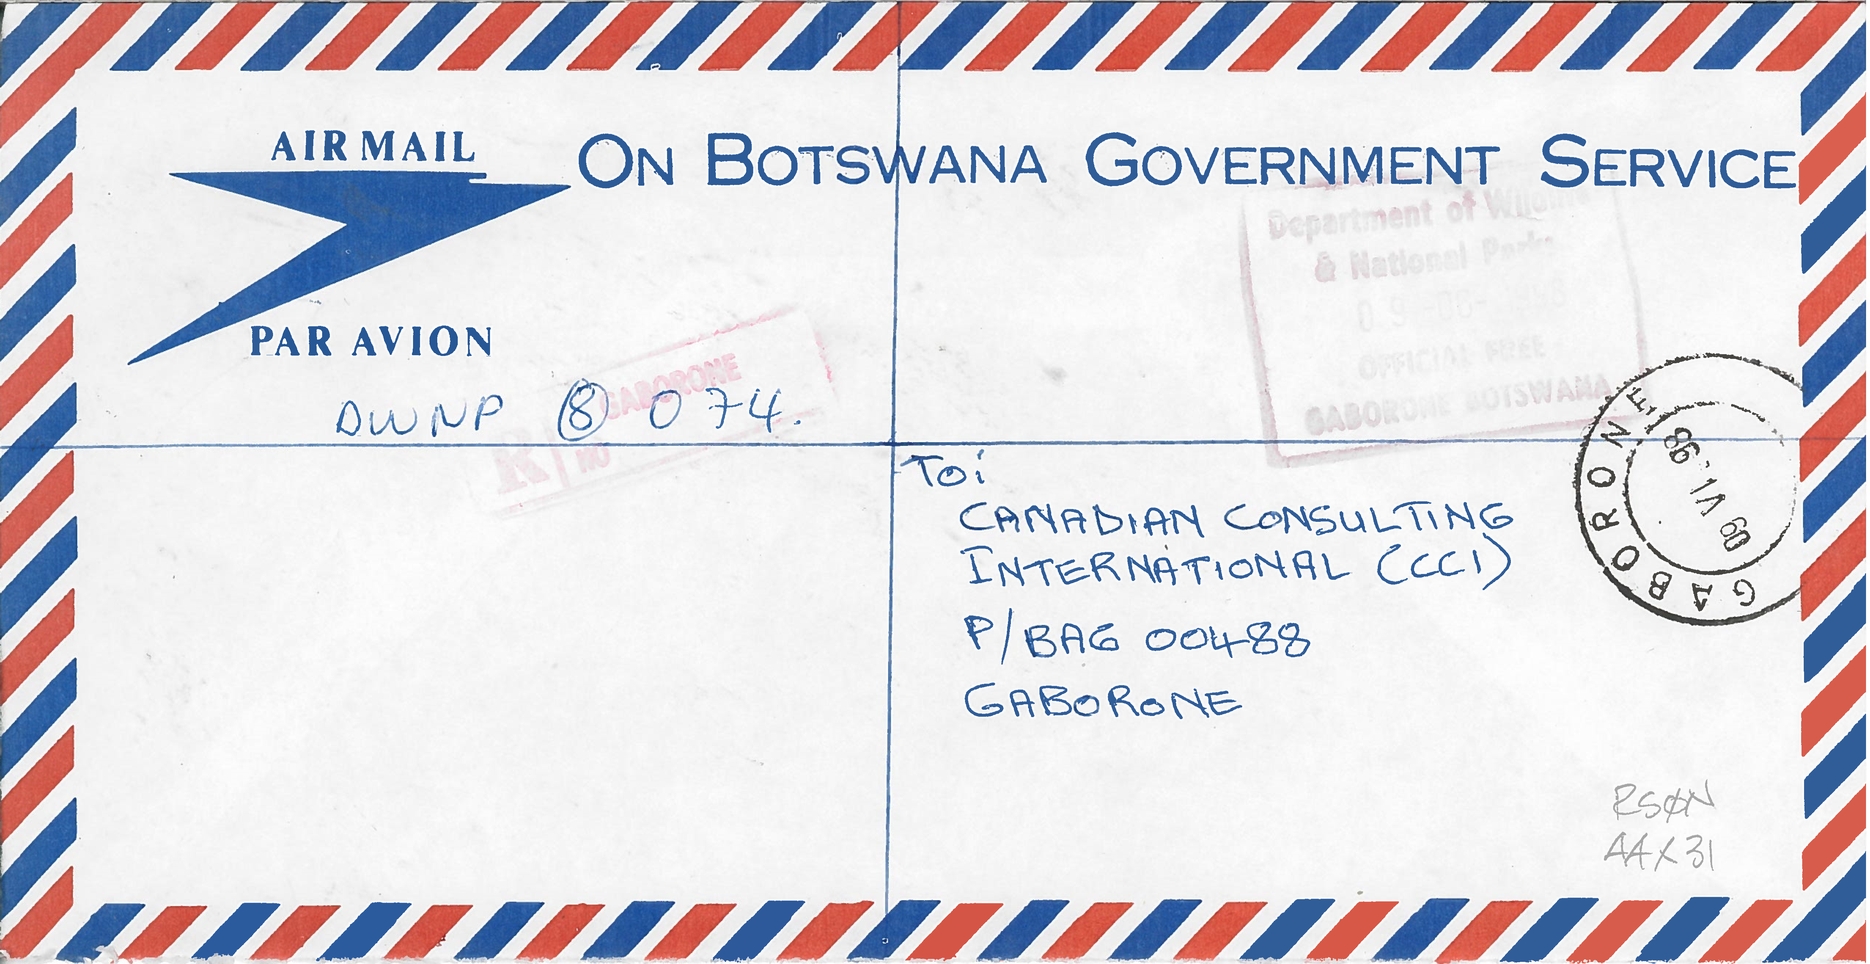 AIR MAIL
ON BOTSWANA GOVERNMENT SERVICE
PAR AVION
Department of Wildlife
& National Parks
09 -06- 1998
OFFICIAL FREE
GABORONE BOTSWANA
GABORONE
R
No
DWNP 8 074.
GABORONE
09 VI. 98
To:
CANADIAN CONSULTING
INTERNATIONAL (CCI)
P/BAG 00488
GABORONE
AAX31